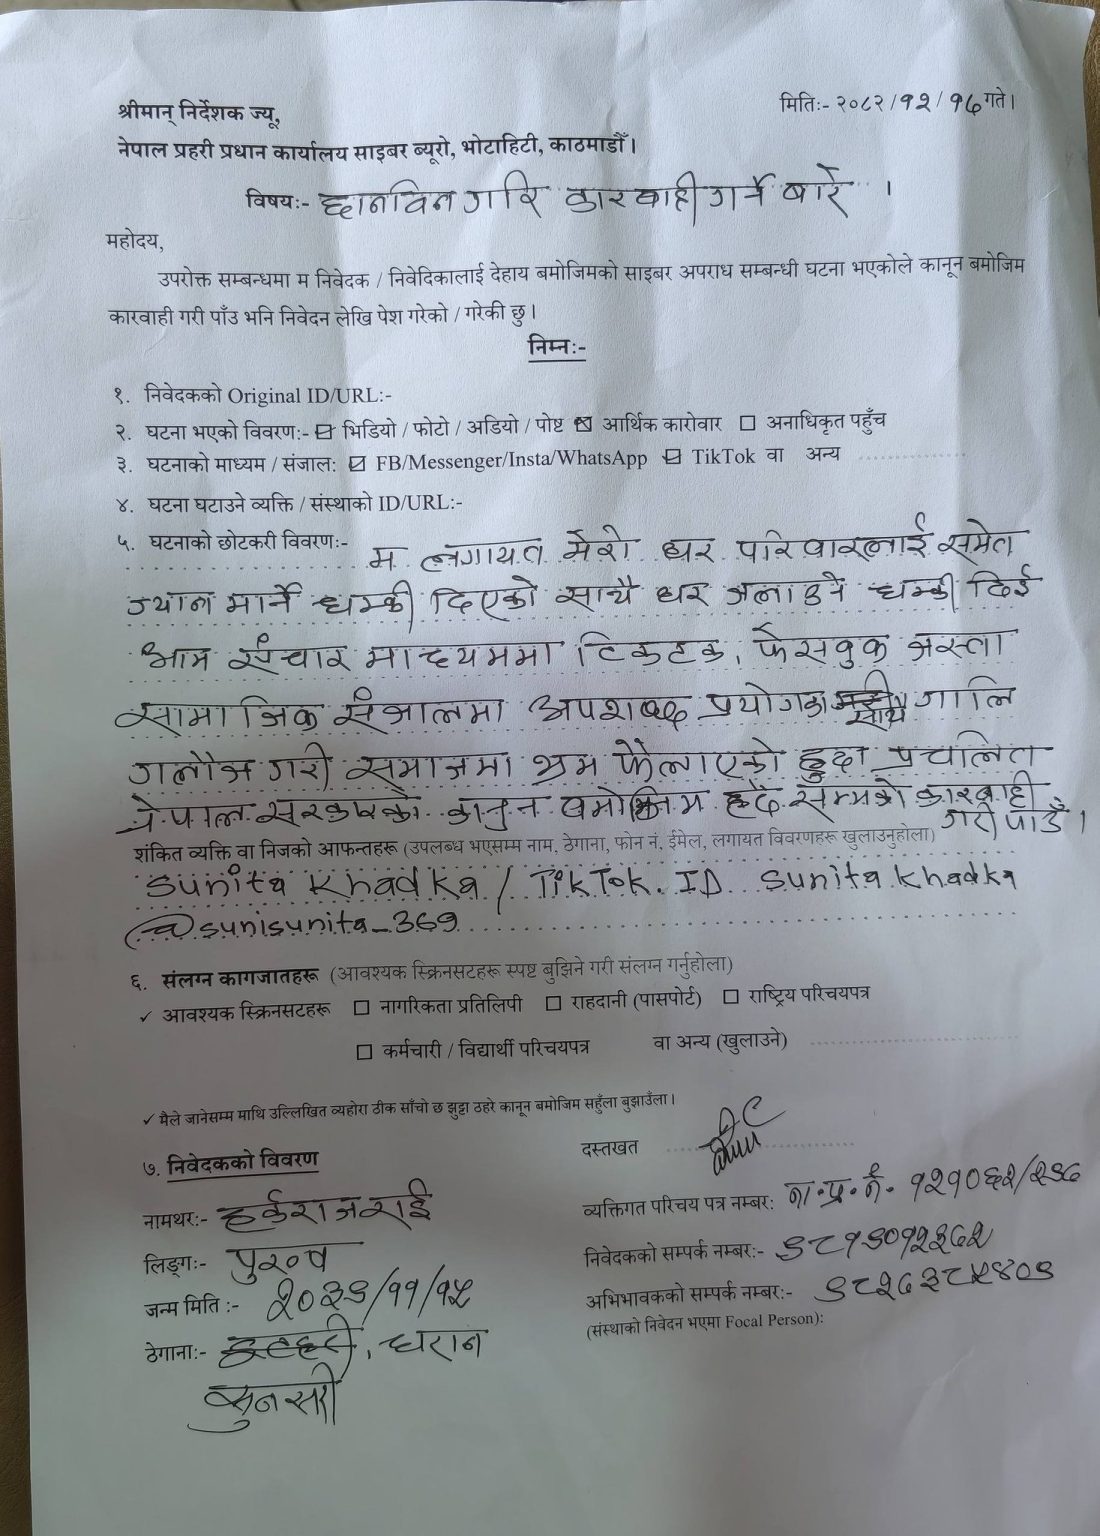 मितिः- २०८२/१२/१६ गते।
श्रीमान् निर्देशक ज्यू,
नेपाल प्रहरी प्रधान कार्यालय साइबर ब्यूरो, भोटाहिटी, काठमाडौँ।
विषयः- छानविन गरि कारवाही गर्ने बारे ।
महोदय,
उपरोक्त सम्बन्धमा म निवेदक / निवेदिकालाई देहाय बमोजिमको साइबर अपराध सम्बन्धी घटना भएकोले कानून बमोजिम
कारवाही गरी पाँउ भनि निवेदन लेखि पेश गरेको / गरेकी छु।
निम्नः-
१. निवेदकको Original ID/URL:-
२. घटना भएको विवरणः- ☑ भिडियो / फोटो / अडियो / पोष्ट ☒ आर्थिक कारोवार ☐ अनाधिकृत पहुँच
३. घटनाको माध्यम / संजाल: ☑ FB/Messenger/Insta/WhatsApp ☑ TikTok वा अन्य
४. घटना घटाउने व्यक्ति / संस्थाको ID/URL:-
५. घटनाको छोटकरी विवरणः- म लगायत मेरो घर परिवारलाई समेत
ज्यान मार्ने धम्की दिएको साथै घर जलाउने धम्की दिई
आम संचार माध्यममा टिकटक, फेसवुक जस्ता
सामाजिक संजालमा अपशब्द प्रयोगका साथै गालि
गलौज गरी समाजमा भ्रम फैलाएको हुदा प्रचलित
नेपाल सरकारको कानुन वमोजिम हदै सम्मको कारवाही
गरी पाउँ।
शंकित व्यक्ति वा निजको आफन्तहरू (उपलब्ध भएसम्म नाम, ठेगाना, फोन नं, ईमेल, लगायत विवरणहरू खुलाउनुहोला)
Sunita Khadka / TikTok. ID Sunita Khadka
@sunisunita_369
६. संलग्न कागजातहरू (आवश्यक स्क्रिनसटहरू स्पष्ट बुझिने गरी संलग्न गर्नुहोला)
✓ आवश्यक स्क्रिनसटहरू ☐ नागरिकता प्रतिलिपी ☐ राहदानी (पासपोर्ट) ☐ राष्ट्रिय परिचयपत्र
☐ कर्मचारी / विद्यार्थी परिचयपत्र वा अन्य (खुलाउने)
✓ मैले जानेसम्म माथि उल्लिखित व्यहोरा ठीक साँचो छ झुट्ठा ठहरे कानून बमोजिम सहुँला बुझाउँला।
दस्तखत
७. निवेदकको विवरण
नामथरः- हर्कराज राई
लिङ्गः- पुरुष
जन्म मिति :- २०३९/११/१५
ठेगानाः- धरान
सुनसरी
व्यक्तिगत परिचय पत्र नम्बर: ना.प्र.नं. १२१०६२/२९६
निवेदकको सम्पर्क नम्बरः- ९८१९०१२३६२
अभिभावकको सम्पर्क नम्बरः- ९८२६३८५४०९
(संस्थाको निवेदन भएमा Focal Person):